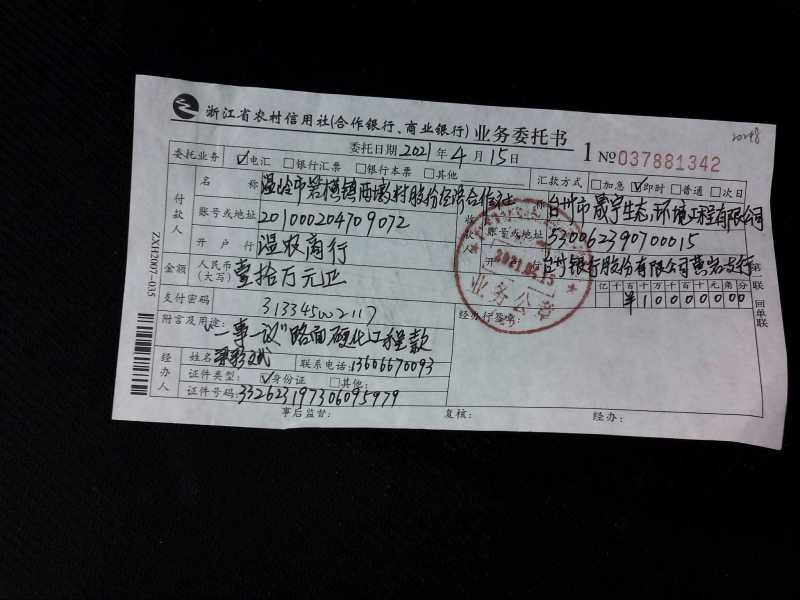 浙江省农村信用社(合作银行、商业银行)业务委托书
20248
委托日期 2021 年 4 月 15 日
1 № 037881342
委托业务 ☑电汇 □银行汇票 □银行本票 □其他
汇款方式 □加急 ☑即时 □普通 □次日
付款人
名称 温岭市箬横镇西墩村股份经济合作社
账号或地址 201000204709072
开户行 温农商行
收款人
称 台州市晟宇生态环境工程有限公司
账号或地址 520062390700015
开 行 台州银行股份有限公司黄岩支行
金额 人民币(大写) 壹拾万元正
亿 千 百 十 万 千 百 十 元 角 分
¥10000000
支付密码 313345002117
附言及用途: "一事一议"路面硬化工程款
经办行签章:
2021.04.15
业务公章
经办人
姓名 联系电话: 13606670093
证件类型: ☑身份证 □其他:
证件号码: 332623197306095979
事后监督: 复核: 经办:
第 联 回单联
ZXH2007-035